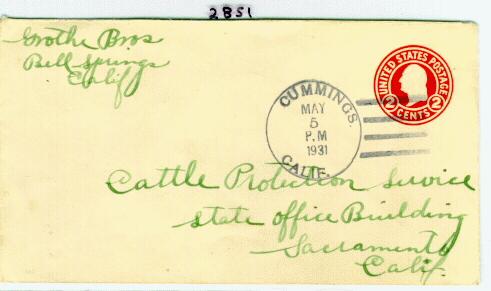 2851
Grothe Bros
Bell Springs
Calif
UNITED STATES POSTAGE
2 CENTS 2
CUMMINGS.
MAY
5
P.M
1931
CALIF.
Cattle Protection Service
State Office Building
Sacramento
Calif.